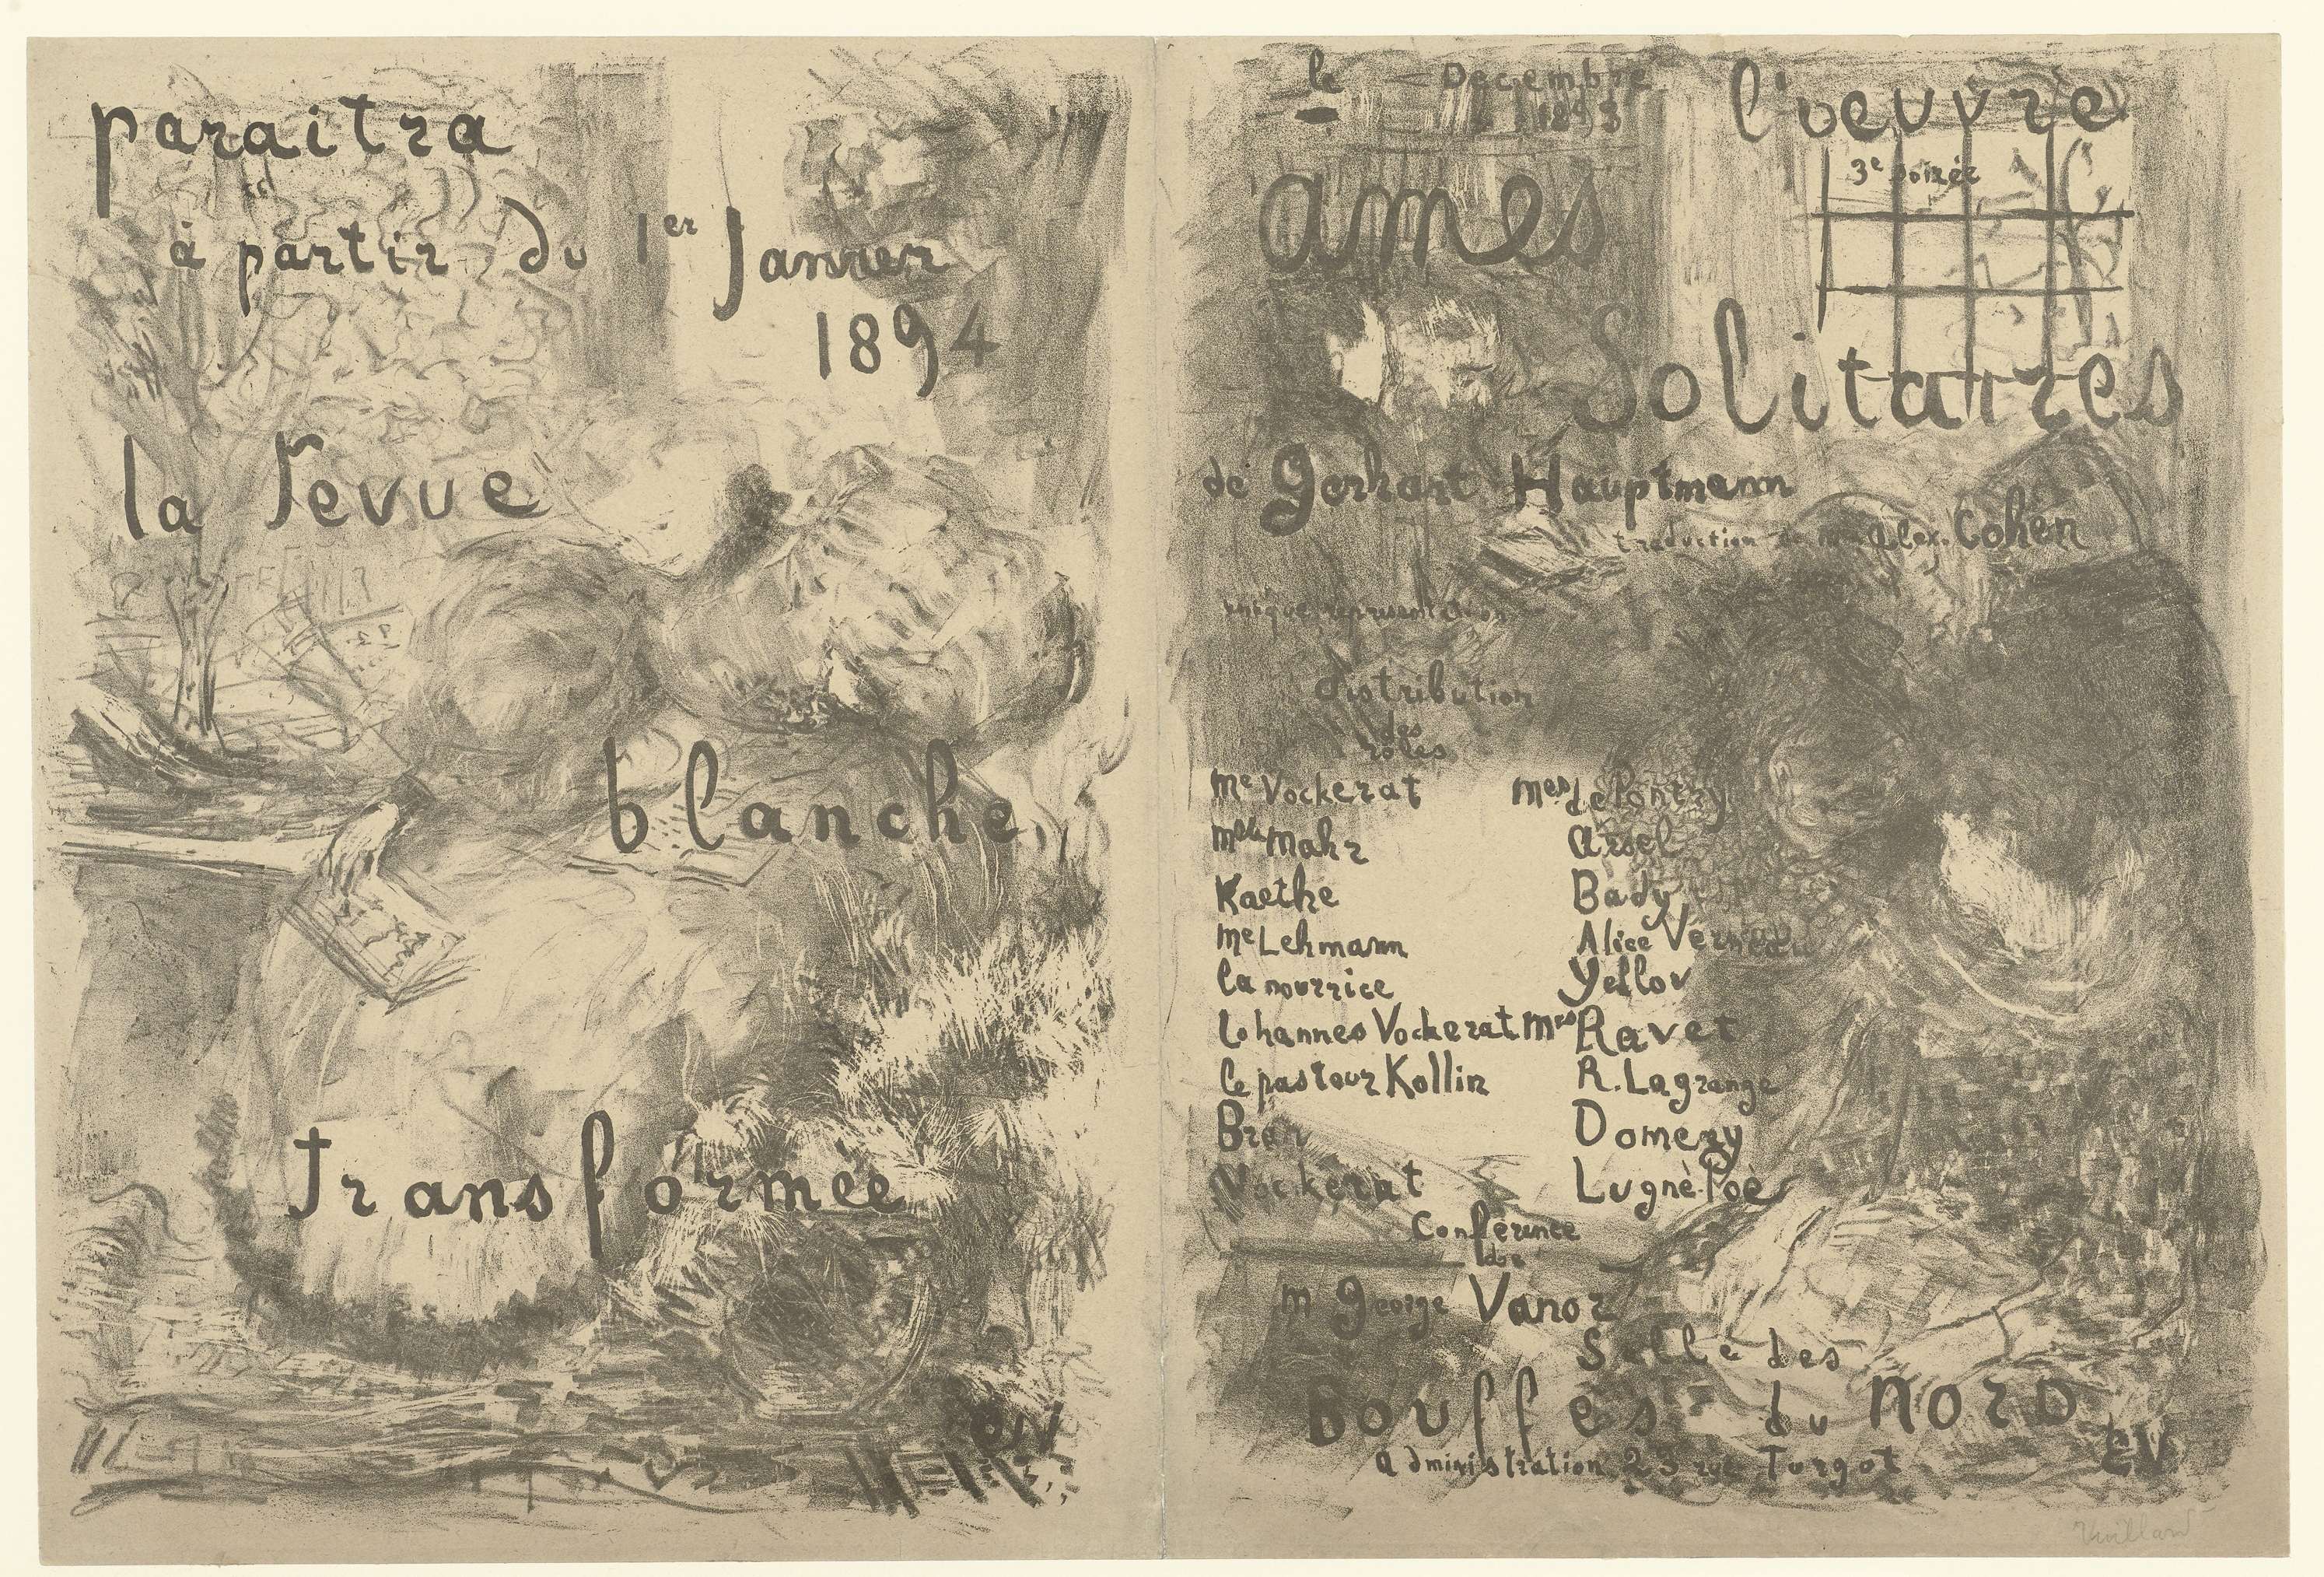 paraitra
à partir du 1er Janvier
1894
la revue
blanche
transformée
EV
le Decembre
1893
l'oeuvre
3e soirée
âmes
Solitaires
de Gerhart Hauptmann
traduction de Mr Alex. Cohen
unique representation
distribution
des
rôles
Me Vockerat Mes de Pontry
Mlle Mahr Arsel
Kaethe Bady
Me Lehmann Alice Verneau
la nourrice Yellov
Iohannes Vockerat Mrs Ravet
le pasteur Kollin R. Lagrange
Bran Domeny
Vockerat Lugné-Poë
Conférence
de
M George Vanor
Salle des
Bouffes du Nord
administration 23 rue Turgot
EV
Vuillard